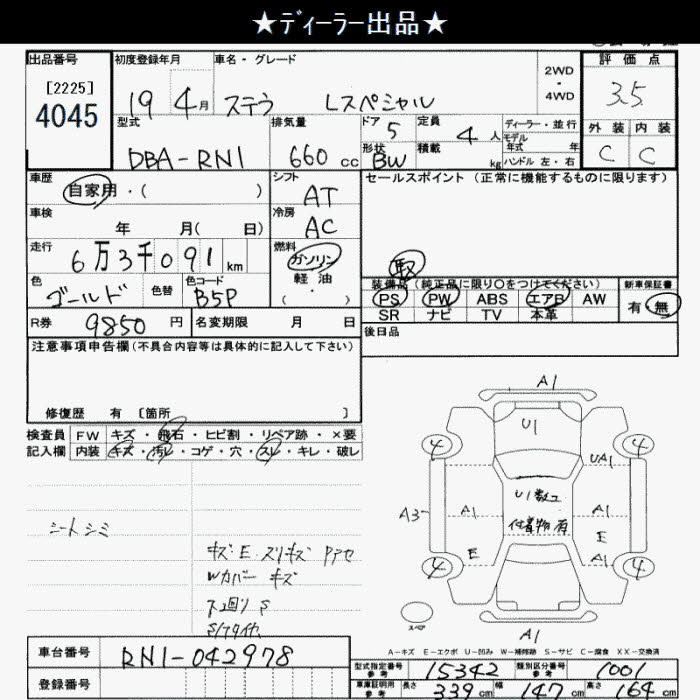 ★ディーラー出品★
出品番号 初度登録年月 車名・グレード 2WD ・ 4WD 評価点
[2225] 4045 19 4月 ステラ Lスペシャル 3.5
型式 排気量 ドア 5 定員 4人 ディーラー・並行 外装 内装
モデル年式 年
DBA-RN1 660cc 形状 BW 積載 kg ハンドル 左・右 C C
車歴 シフト セールスポイント (正常に機能するものに限ります)
自家用・( ) AT
車検 冷房
年 月( 日) AC
走行 燃料
6万3千091km ガソリン 取
軽油
色 色替 色コード ・ 装備品 (純正品に限り○をつけてください) 新車保証書
ゴールド B5P ( ) PS PW ABS エアB AW 有・無
SR ナビ TV 本革
R券 9850円 名変期限 月 日 後日品
注意事項申告欄(不具合内容等は具体的に記入して下さい)
修復歴 有 [箇所 ]
検査員 FW キズ・飛石・ヒビ割・リペア跡・×要
記入欄 内装 キズ・汚レ・コゲ・穴・スレ・キレ・破レ
シートシミ
キズ・E スリキズ アセ
Wカバー キズ
下回り S
A1
U1
4 4
UA1
U1数コ
A3 A1 付着物有 A1
E
E A1
4 4
スペア
A1
A-キズ E-エクボ U-凹み W-補修跡 S-サビ C-腐食 XX-交換済
車台番号 RN1-042978
登録番号
型式指定番号 参考 15342 類別区分番号 参考 1001
車庫証明用 参考 長さ 339cm 幅 147cm 高さ 164cm